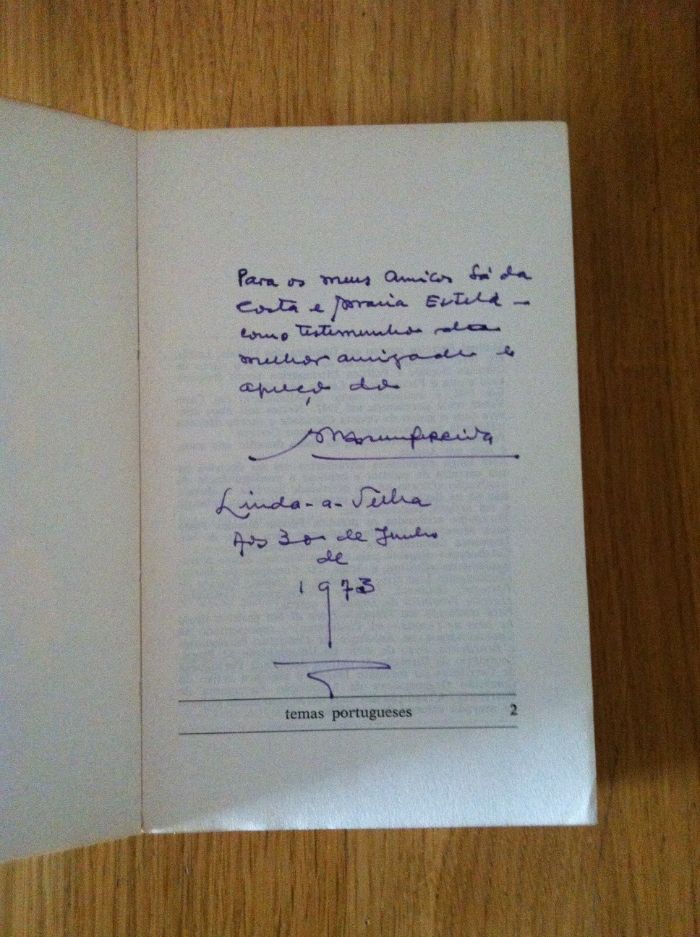 Para os meus Amigos Sá da
Costa e Maria Estela –
como testemunho da
melhor amizade e
apreço do
Linda-a-Velha
Aos 30 de Junho
de
1973
temas portugueses 2